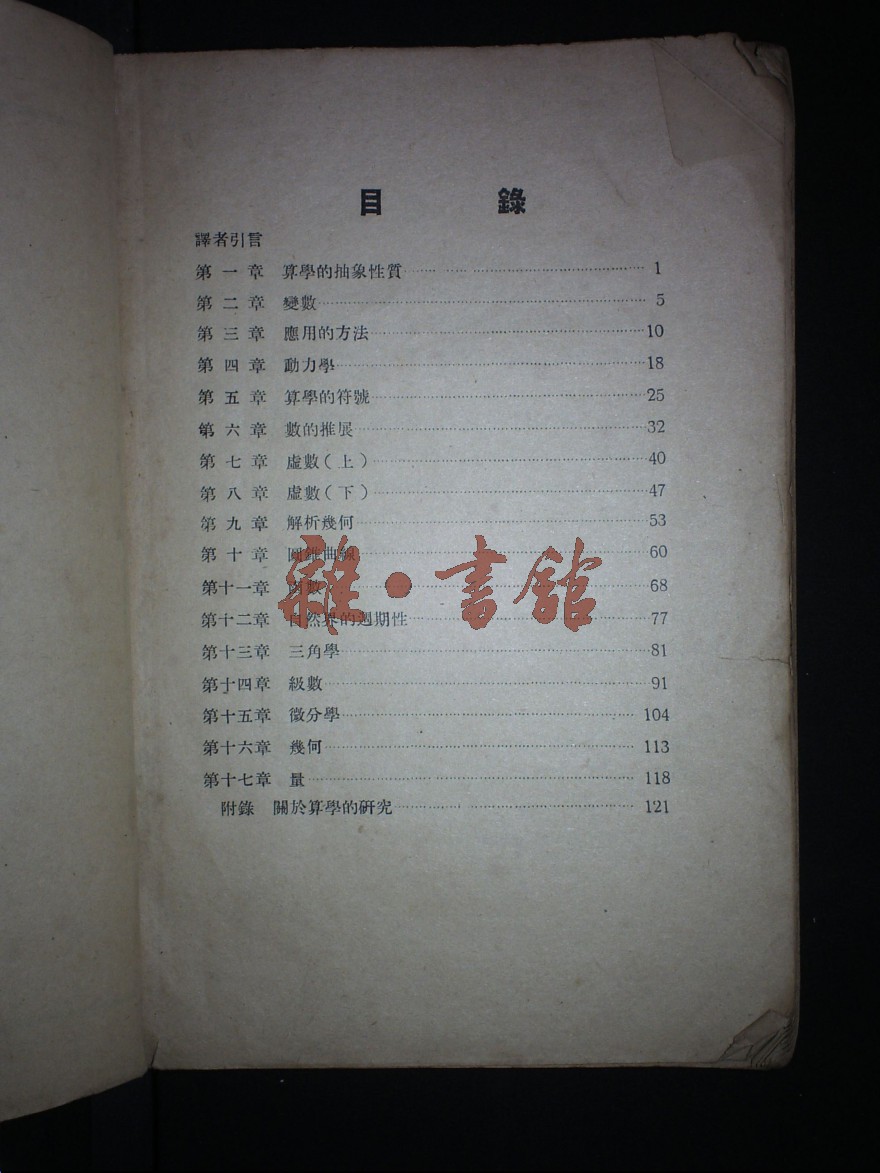 目 錄
譯者引言
第一章 算學的抽象性質 1
第二章 變數 5
第三章 應用的方法 10
第四章 動力學 18
第五章 算學的符號 25
第六章 數的推展 32
第七章 虛數(上) 40
第八章 虛數(下) 47
第九章 解析幾何 53
第十章 圓錐曲線 60
第十一章 函數 68
第十二章 自然界的週期性 77
第十三章 三角學 81
第十四章 級數 91
第十五章 微分學 104
第十六章 幾何 113
第十七章 量 118
附錄 關於算學的研究 121
雜·書館